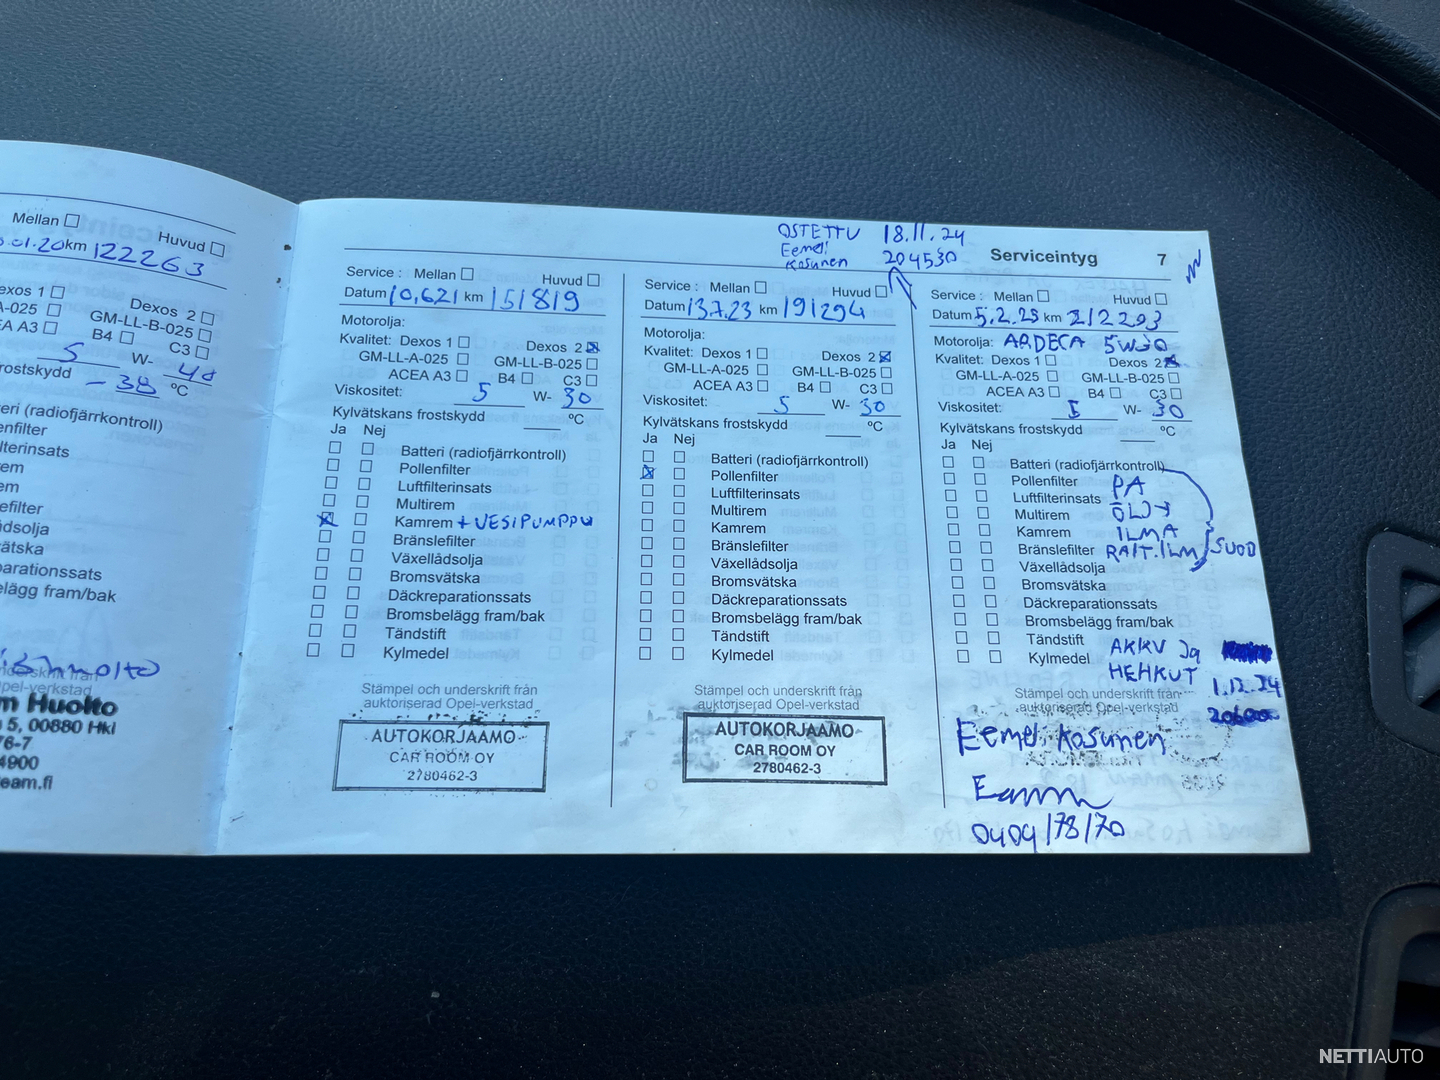 Mellan
Huvud
.01.20 km 122263
Dexos 1
Dexos 2
A-025
GM-LL-B-025
ACEA A3
B4
C3
5 W- 40
frostskydd -38 °C
Batteri (radiofjärrkontroll)
Pollenfilter
Huolto
5, 00880 Hki
76-7
4900
team.fi
OSTETTU 18.11.24
Eemeli
Kosunen 204530
Serviceintyg 7
Service : Mellan Huvud
Datum 10,621 km 151819
Motorolja:
Kvalitet: Dexos 1 Dexos 2
GM-LL-A-025 GM-LL-B-025
ACEA A3 B4 C3
Viskositet: 5 W- 30
Kylvätskans frostskydd °C
Ja Nej
Batteri (radiofjärrkontroll)
Pollenfilter
Luftfilterinsats
Multirem
Kamrem + VESIPUMPPU
Bränslefilter
Växellådsolja
Bromsvätska
Däckreparationssats
Bromsbelägg fram/bak
Tändstift
Kylmedel
Stämpel och underskrift från
auktoriserad Opel-verkstad
AUTOKORJAAMO
CAR ROOM OY
2780462-3
Service : Mellan Huvud
Datum 13.7.23 km 191294
Motorolja:
Kvalitet: Dexos 1 Dexos 2
GM-LL-A-025 GM-LL-B-025
ACEA A3 B4 C3
Viskositet: 5 W- 30
Kylvätskans frostskydd °C
Ja Nej
Batteri (radiofjärrkontroll)
Pollenfilter
Luftfilterinsats
Multirem
Kamrem
Bränslefilter
Växellådsolja
Bromsvätska
Däckreparationssats
Bromsbelägg fram/bak
Tändstift
Kylmedel
Stämpel och underskrift från
auktoriserad Opel-verkstad
AUTOKORJAAMO
CAR ROOM OY
2780462-3
Service : Mellan Huvud
Datum 5.2.25 km 212293
Motorolja: ARDECA 5W30
Kvalitet: Dexos 1 Dexos 2
GM-LL-A-025 GM-LL-B-025
ACEA A3 B4 C3
Viskositet: 5 W- 30
Kylvätskans frostskydd °C
Ja Nej
Batteri (radiofjärrkontroll)
Pollenfilter PA
Luftfilterinsats
Multirem ÖLJY
Kamrem ILMA
Bränslefilter RAIT.ILM SUOD
Växellådsolja
Bromsvätska
Däckreparationssats
Bromsbelägg fram/bak
Tändstift AKKU Ja
Kylmedel HEHKUT 1.12.24
Stämpel och underskrift från
auktoriserad Opel-verkstad
Eemeli Kosunen
0404178170
NETTIAUTO